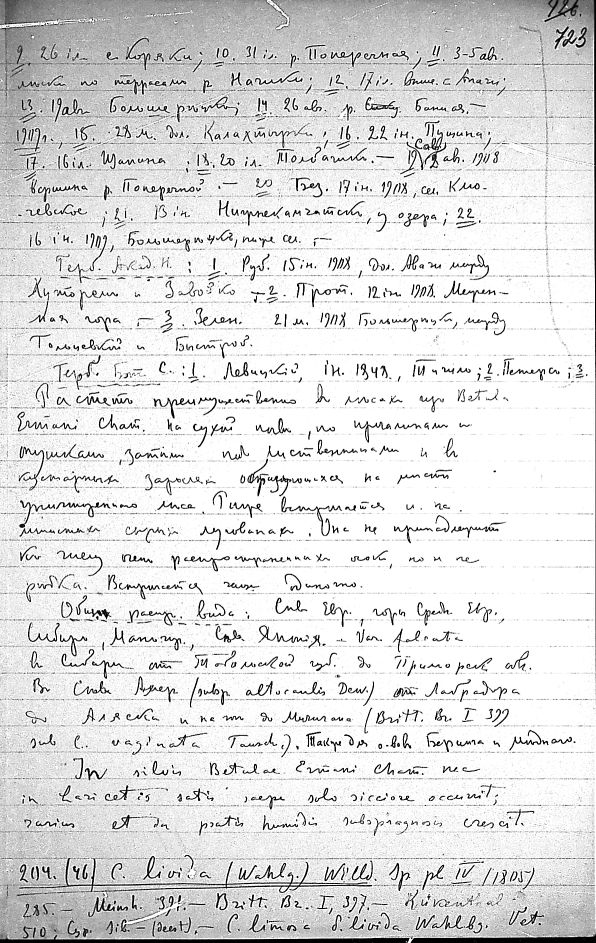 723
9. 26 іл. с. Коряки; 10. 31 іл. р. Поперечная; 11. 3-5 ав.
по террасамъ р. Начики; 12. 17 іл. выше с. Апачи;
13. 19 ав. Большерѣчкъ; 14. 26 ав. р. Банная. —
1909 г., 15. 28 м. дол. Калахтырки; 16. 22 ін. Пущина;
17. 16 іл. Щапина; 18. 20 іл. Толбачикъ. — 19. 2 ав. 1908
вершина р. Поперечной. — 20. Без. 17 ін. 1908, сел. Клю-
чевское; 21. 13 ін. Нижнекамчатскъ, у озера; 22.
16 ін. 1909, Большерѣцкъ, сел. —
Герб. Акад. Н.: 1. Руб. 15 ін. 1908, дол. Авачи между
Хуторомъ и Завойко. — 2. Прот. 12 ін. 1908 Мишен-
ная гора. — 3. Зелен. 21 м. 1908 Большерѣцкъ, между
и Быстрой.
Герб. Бот. С.: 1. Левицкій, ін. 1848, Тигиль; 2. Петерсъ; 3.
Растетъ преимущественно въ лѣсахъ изъ Betula
Ermani Cham. на сухой почвѣ, по прогалинамъ и
опушкамъ, затѣмъ подъ лиственницами и въ
кустарныхъ заросляхъ образующихся на мѣстѣ
уничтоженнаго лѣса. Рѣже встрѣчается и на
мшистыхъ сырыхъ луговинахъ. Она не принадлежитъ
къ числу очень распространенныхъ осокъ, но и не
рѣдка. Встрѣчается чаще одиночно.
Общ. распр. вида: Сѣв. Евр., горы Средн. Евр.,
Сибирь, Манчжур., Сѣв. Японія. — Var. falcata
въ Сибири отъ Тобольской губ. до Приморск. обл.
Въ Сѣв. Амер. (subsp. altocaulis Dew.) отъ Лабрадора
до Аляски и на югъ до Мичигана (Britt. Br. I 399
sub C. vaginata Tausch.). Также для о-вовъ Беринга и Мѣднаго.
In silvis Betulae Ermani Cham. nec
in Laricetis satis saepe solo sicciore occurrit;
rarius et in pratis humidis subsphagnosis crescit.
204. (46) C. livida (Wahlbg.) Willd. Sp. pl. IV (1805)
285. — Meinsh. 391. — Britt. Br. I, 397. — Kükenthal
510; Cyp. Sib. — (deest). — C. limosa β. livida Wahlbg. Vet.